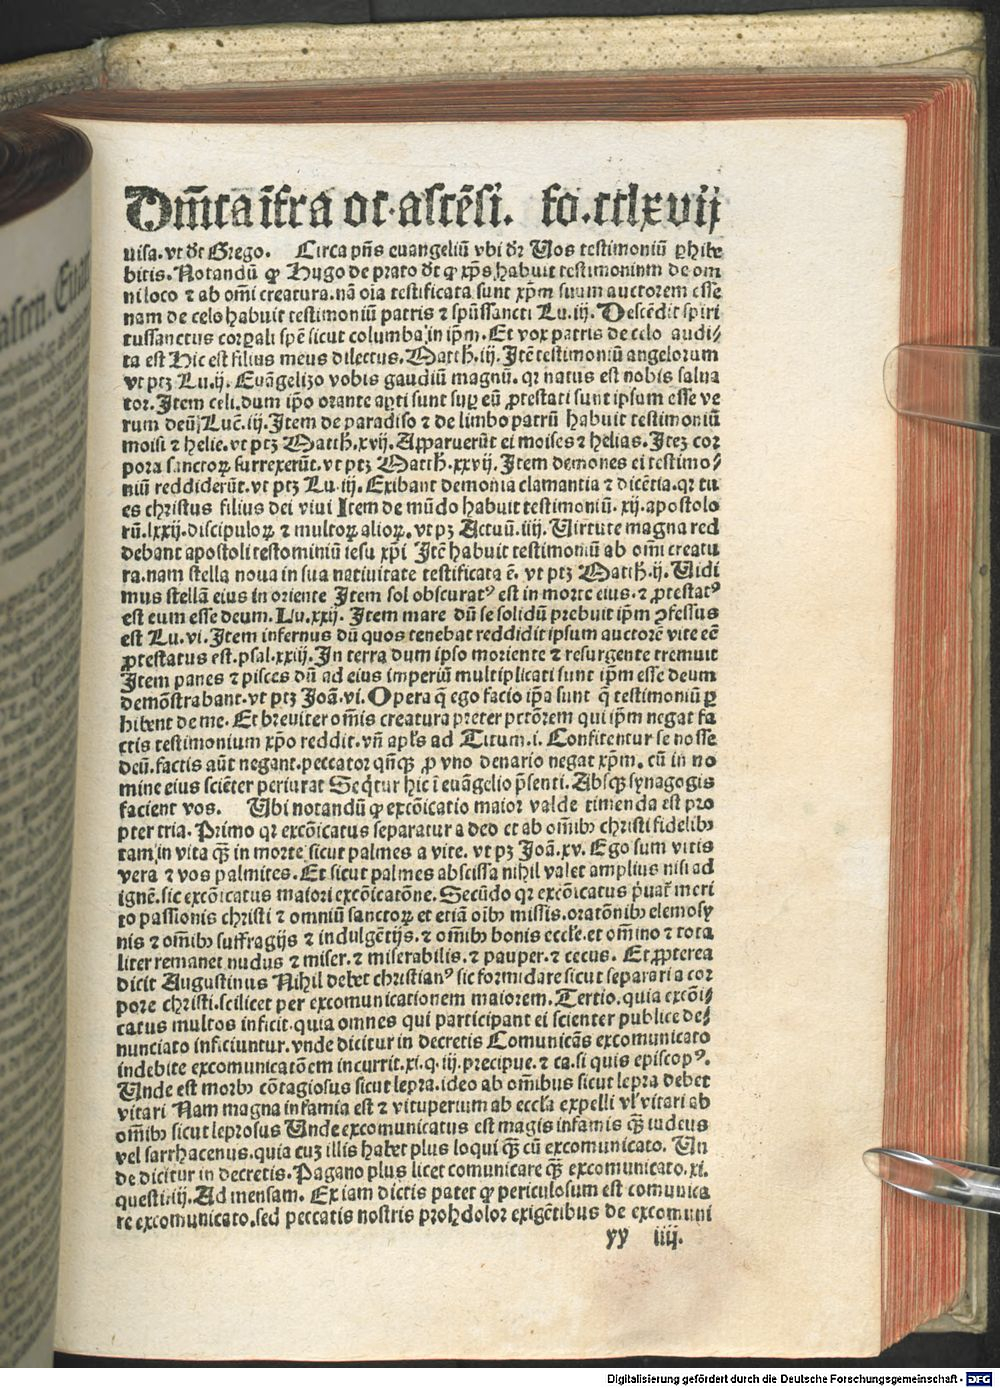 Dn̄ica ifra oc. ascēsi. fo. cclxvij
uisa. vt dt̄ Grego. Circa pn̄s euangeliū vbi dr̄ Uos testimoniū ꝑhibe
bitis. Notandū ꝙ Hugo de prato dt̄ ꝙ xp̄s habuit testimonium de om
ni loco ⁊ ab om̄i creatura. nā oīa testificata sunt xp̄m suum auctorem esse
nam de celo habuit testimoniū patris ⁊ spūssancti Lu. iij. Descēdit spiri
tussanctus corꝑali spē sicut columba in ip̄m. Et vox patris de celo audi⸗
ta est Hic est filius meus dilectus. Matth̄. iij. Itē testimoniū angelorum
vt ptꝫ Lu. ij. Euāgelizo vobis gaudiū magnū. qr natus est nobis salua
tor. Item celi. dum ip̄o orante apti sunt suꝑ eū ꝓtestati sunt ipsum esse ve
rum deū. Luc̄. iij. Item de paradiso ⁊ de limbo patrū habuit testimoniū
moisi ⁊ helie. vt ptꝫ Matth̄. xvij. Apparuerūt ei moises ⁊ helias. Iteꝫ cor
pora sanctoꝝ surrexerūt. vt ptꝫ Matth̄. xxvij. Item demones ei testimo⸗
niū reddiderūt. vt ptꝫ Lu. iij. Exibant demonia clamantia ⁊ dicētia. qr tu
es christus filius dei viui Item de mūdo habuit testimoniū. xij. apostolo
rū. lxxij. discipuloꝝ ⁊ multoꝝ alioꝝ. vt pꝫ Actuū. iiij. Uirtute magna red
debant apostoli testominiū iesu xp̄i Itē habuit testimoniū ab om̄i creatu
ra. nam stella noua in sua natiuitate testificata ē. vt ptꝫ Matth̄. ij. Uidi
mus stellā eius in oriente Item sol obscuratꝰ est in morte eius. ⁊ ꝓtestatꝰ
est eum esse deum. Lu. xxij. Item mare dū se solidū prebuit ip̄m ꝯfessus
est Lu. vi. Item infernus dū quos tenebat reddidit ipsum auctorē vite eē
ꝓtestatus est. psal. xxiij. In terra dum ipso moriente ⁊ resurgente tremuit
Item panes ⁊ pisces dū ad eius imperiū multiplicati sunt ip̄m esse deum
demōstrabant. vt ptꝫ Joā. vi. Opera q̄ ego facio ip̄a sunt q̄ testimoniū ꝑ
hibent de me. Et breuiter om̄is creatura preter pctōrem qui ip̄m negat fa
ctis testimonium xp̄o reddit. vn̄ apl's ad Titum. i. Confitentur se nosse
deū. factis aūt negant. peccator qn̄qꝫ ꝓ vno denario negat xp̄m. cū in no
mine eius sciēter periurat Seq̄tur hic ī euāgelio p̄senti. Absqꝫ synagogis
facient vos. Ubi notandū ꝙ excōicatio maior valde timenda est pro
pter tria. Primo qr excōicatus separatur a deo et ab om̄ibꝰ christi fidelibꝰ
tam in vita qꝫ̄ in morte sicut palmes a vite. vt pꝫ Joā. xv. Ego sum vitis
vera ⁊ vos palmites. Et sicut palmes abscissa nihil valet amplius nisi ad
ignē. sic excōicatus maiori excōicatōne. Secūdo qr excōicatus p̄uat̄ meri
to passionis christi ⁊ omniū sanctoꝝ et etiā oībꝰ missis. oratōnibꝰ elemosy
nis ⁊ om̄ibꝰ suffragijs ⁊ indulgētijs. ⁊ om̄ibꝰ bonis eccl'e. et om̄ino ⁊ tota
liter remanet nudus ⁊ miser. ⁊ miserabilis. ⁊ pauper. ⁊ cecus. Et ꝓpterea
dicit Augustinus Nihil debet christianꝰ sic formidare sicut separari a cor
pore christi. scilicet per excomunicationem maiorem. Tertio. quia excōi⸗
catus multos inficit. quia omnes qui participant ei scienter publice de⸗
nunciato inficiuntur. vnde dicitur in decretis Comunicās excomunicato
indebite excomunicatōem incurrit. xi. q. iij. precipue. ⁊ ca. si quis episcopꝰ.
Unde est morbꝰ cōtagiosus sicut lepra. ideo ab om̄ibus sicut lepra debet
vitari Nam magna infamia est ⁊ vituperium ab eccl'a expelli vl' vitari ab
om̄ibꝰ sicut leprosus Unde excomunicatus est magis infamis qꝫ̄ iudeus
vel sarrhacenus. quia cuꝫ illis habet plus loqui qꝫ̄ cū excomunicato. Un
de dicitur in decretis. Pagano plus licet comunicare qꝫ̄ excomunicato. xi.
questi. iij. Ad mensam. Ex iam dictis patet ꝙ periculosum est comunica
re excomunicato. sed peccatis nostris proh dolor exigētibus de excomuni
yy iiij.
Digitalisierung gefördert durch die Deutsche Forschungsgemeinschaft - DFG